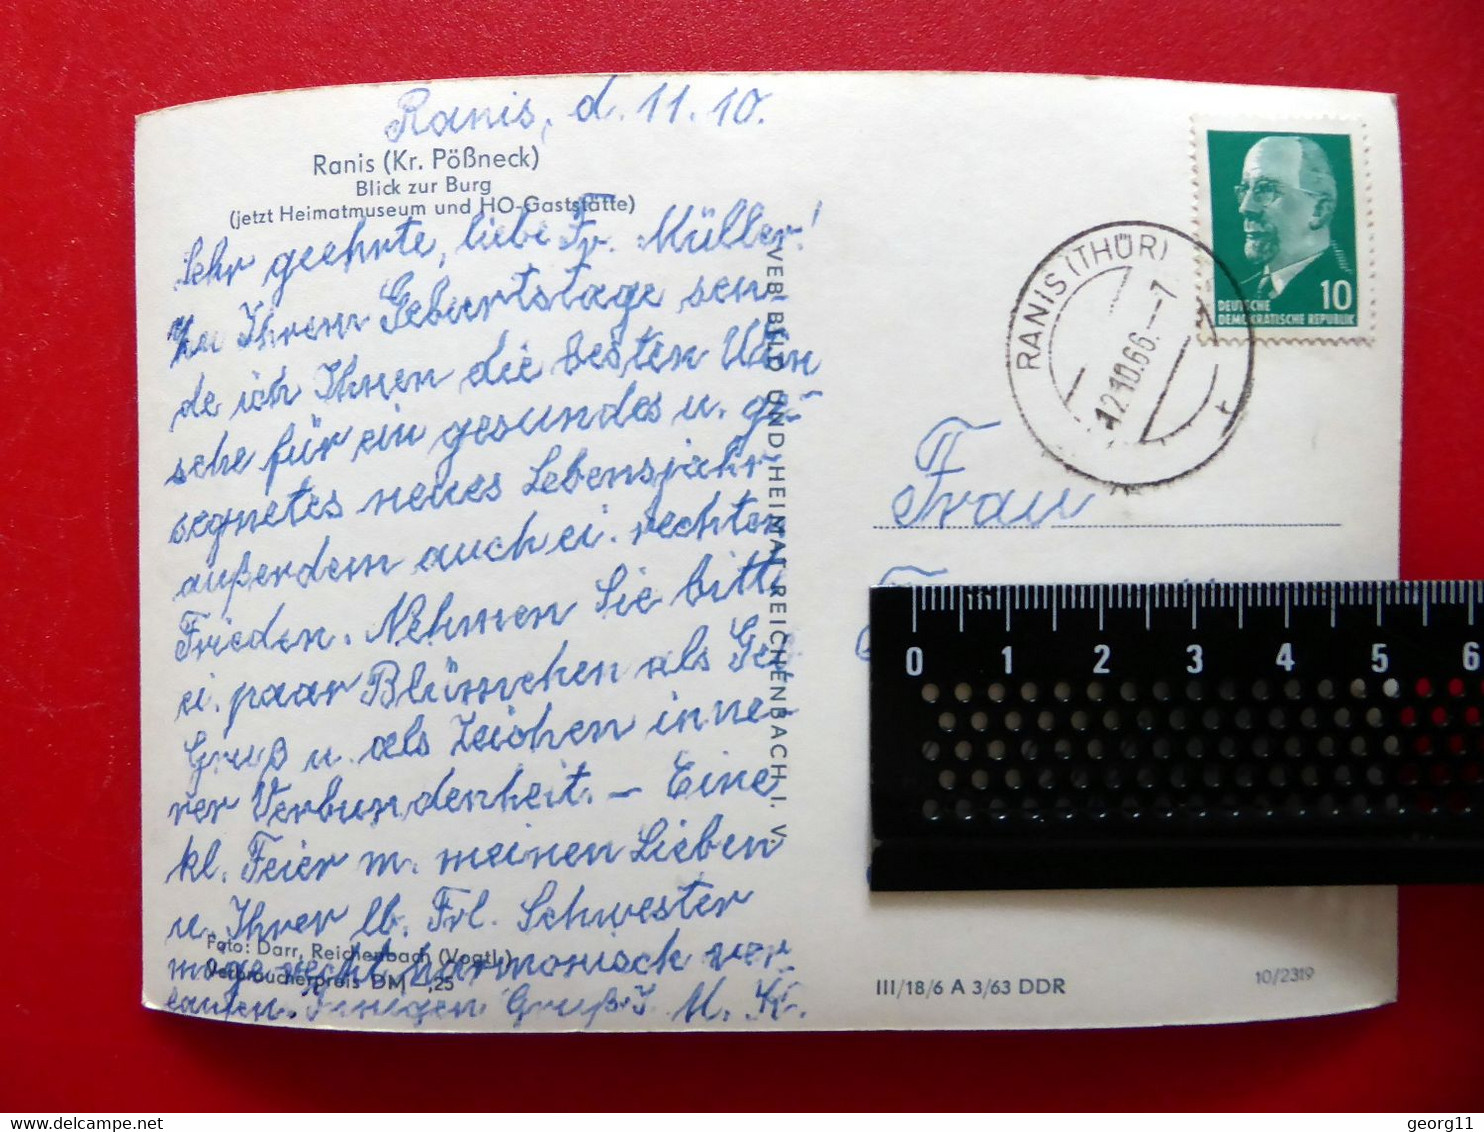 Ranis, d. 11.10.
Ranis (Kr. Pößneck)
Blick zur Burg
(jetzt Heimatmuseum und HO-Gaststätte)
Sehr geehrte, liebe Fr. Müller!
Zu Ihrem Geburtstage sen-
de ich Ihnen die besten Wün
sche für ein gesundes u. ge-
segnetes neues Lebensjahr,
außerdem auch ei. rechten
Frieden. Nehmen Sie bitte
ei. paar Blümchen als
Gruß u. als Zeichen inne-
rer Verbundenheit. – Eine
kl. Feier m. meinen Lieben
u. Ihrer lb. Frl. Schwester
möge recht harmonisch ver-
laufen. Innigen Gruß I. M. K.
Foto: Darr, Reichenbach (Vogtl.)
Verbraucherpreis DM -,25
VEB BILD UND HEIMAT REICHENBACH I. V.
DEUTSCHE
DEMOKRATISCHE REPUBLIK
10
RANIS (THÜR)
12.10.66.--7
Frau
0 1 2 3 4 5 6
III/18/6 A 3/63 DDR
10/2319
georg11